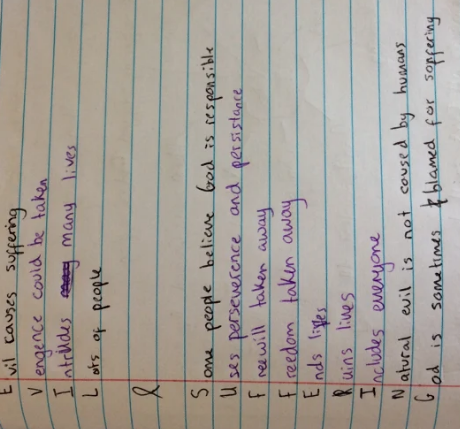 Evil causes suffering
Vengence could be taken
Intrudes many lives
Lots of people
&
Some people believe God is responsible
Uses perseverence and persistance
Freewill taken away
Freedom taken away
Ends lives
Ruins lives
Includes everyone
Natural evil is not caused by humans
God is sometimes blamed for soffering